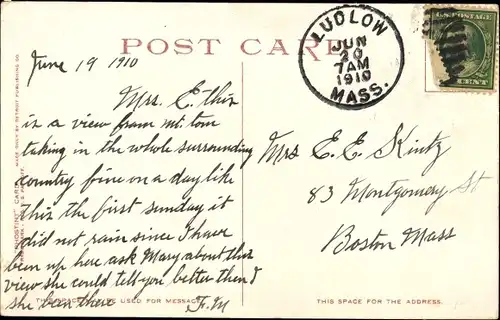 POST CARD
LUDLOW
JUN
20
7AM
1910
MASS.
U.S. POSTAGE
CENT
June 19 1910
Mrs. E. this
is a view from mt. tom
taking in the whole surrounding
country fine on a day like
this the first sunday it
did not rain since I have
been up here ask Mary about this
view she could tell you better then I
she been there F.M
Mrs E. E. Kintz
83 Montgomery St
Boston Mass
THIS SPACE MAY BE USED FOR MESSAGE
THIS SPACE FOR THE ADDRESS.